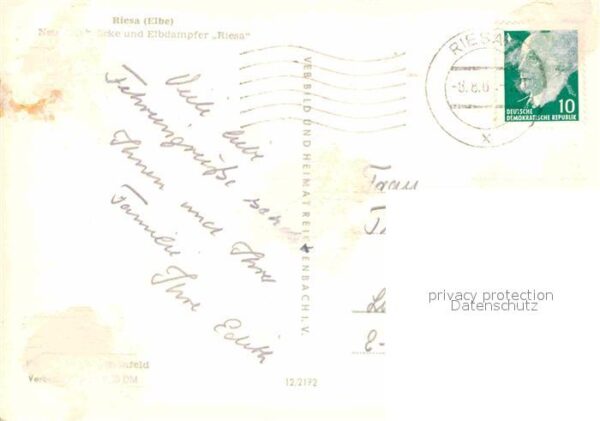 Riesa (Elbe)
und Elbdampfer „Riesa"
Viele liebe
Feriengrüße
Ihnen und Ihrer
Familie Ihre Edith
VEB BILD UND HEIMAT REICHENBACH I. V.
RIESA
-8.8.6
x
10
DEUTSCHE
DEMOKRATISCHE REPUBLIK
Frau
privacy protection
Datenschutz
DM
12/2172